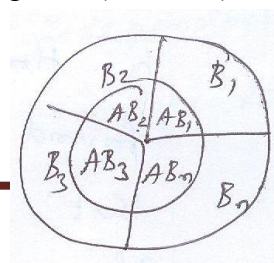 B2
B1
AB2
AB1
B3
AB3
ABn
Bn